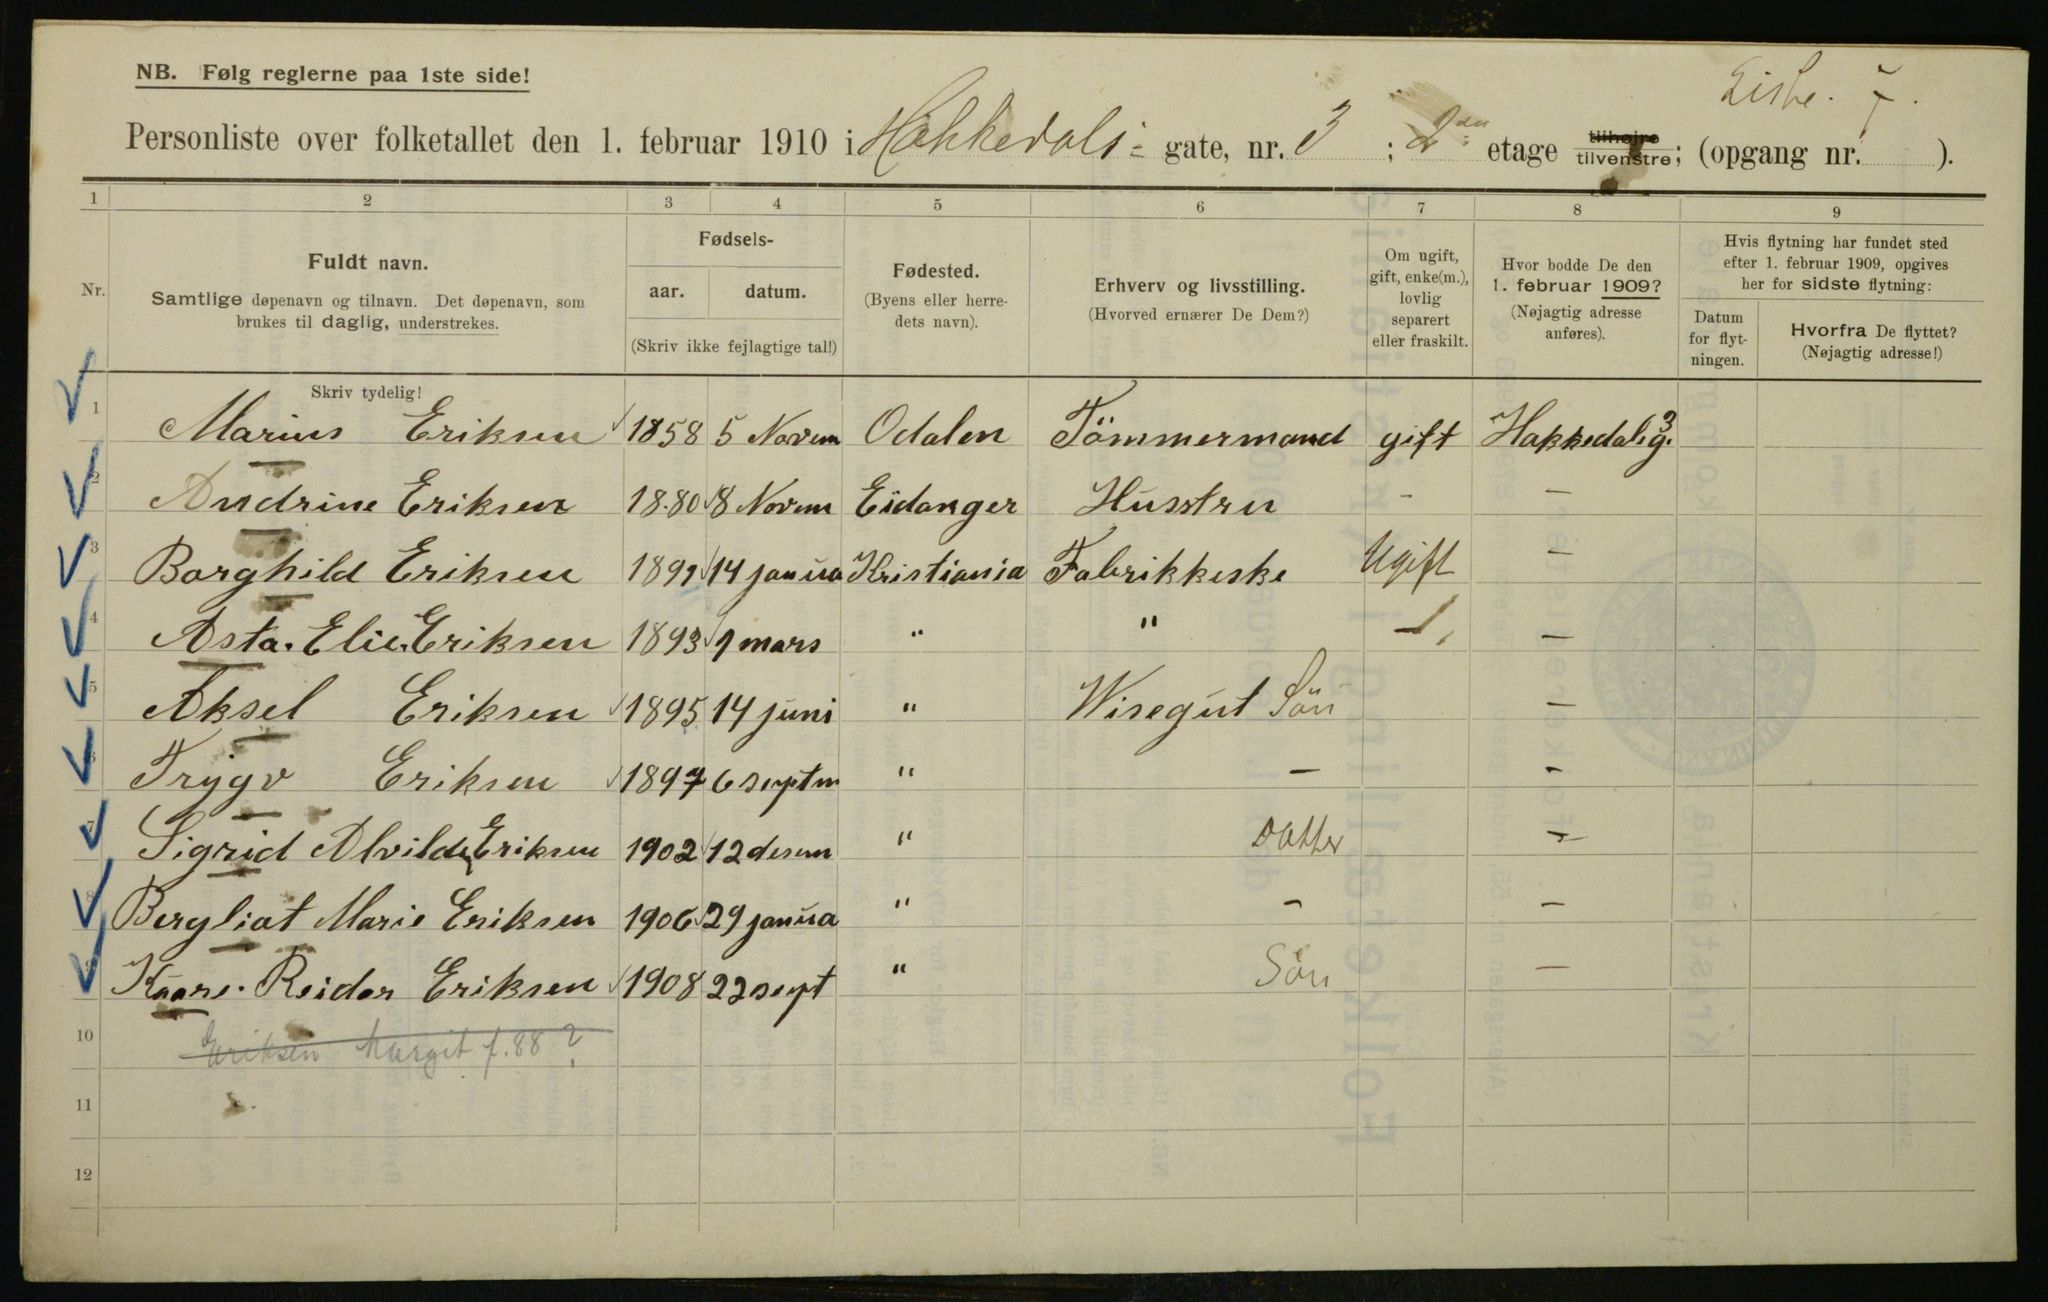 Liste. 7.
NB. Følg reglerne paa 1ste side!
Personliste over folketallet den 1. februar 1910 i Hakkedals = gate, nr. 3 ; 2den etage tilhøjre tilvenstre; (opgang nr. ).
1 2 3 4 5 6 7 8 9
Nr.
Fuldt navn.
Samtlige døpenavn og tilnavn. Det døpenavn, som
brukes til daglig, understrekes.
Fødsels-
aar. datum.
(Skriv ikke fejlagtige tal!)
Fødested.
(Byens eller herre-
dets navn).
Erhverv og livsstilling.
(Hvorved ernærer De Dem?)
Om ugift,
gift, enke(m.),
lovlig
separert
eller fraskilt.
Hvor bodde De den
1. februar 1909?
(Nøjagtig adresse
anføres).
Hvis flytning har fundet sted
efter 1. februar 1909, opgives
her for sidste flytning:
Datum
for flyt-
ningen.
Hvorfra De flyttet?
(Nøjagtig adresse!)
Skriv tydelig!
1 Marius Eriksen 1858 5 Novem Odalen Tömmermand gift Hakkedalsg. 3
2 Andrine Eriksen 18.80 8 Novem Eidanger Husstru - –
3 Borghild Eriksen 1891 14 janua Kristiania Fabrikkeske Ugift –
4 Asta. Elie. Eriksen 1893 1 mars " " –
5 Aksel Eriksen 1895 14 juni " Wisegut Sön –
6 Trygv Eriksen 1897 6 septm " – -
7 Sigrid Alvilde Eriksen 1902 12 desem " Datter –
8 Bergliat Marie Eriksen 1906 29 janua " – –
9 Kaare. Reidar Eriksen 1908 22 sept " Sön –
10 Eriksen Margit f. 88 ?
11
12